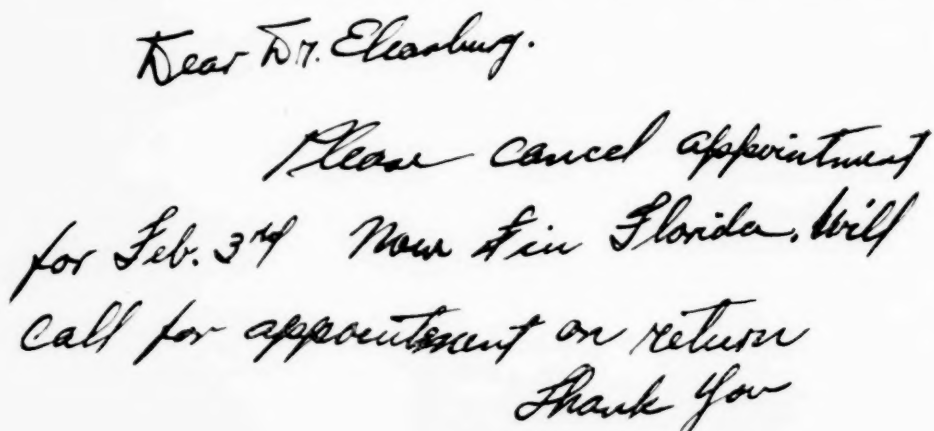 Dear Dr. Ellenburg.
Please cancel appointment
for Feb. 3rd Now in Florida. Will
call for appointment on return
Thank You